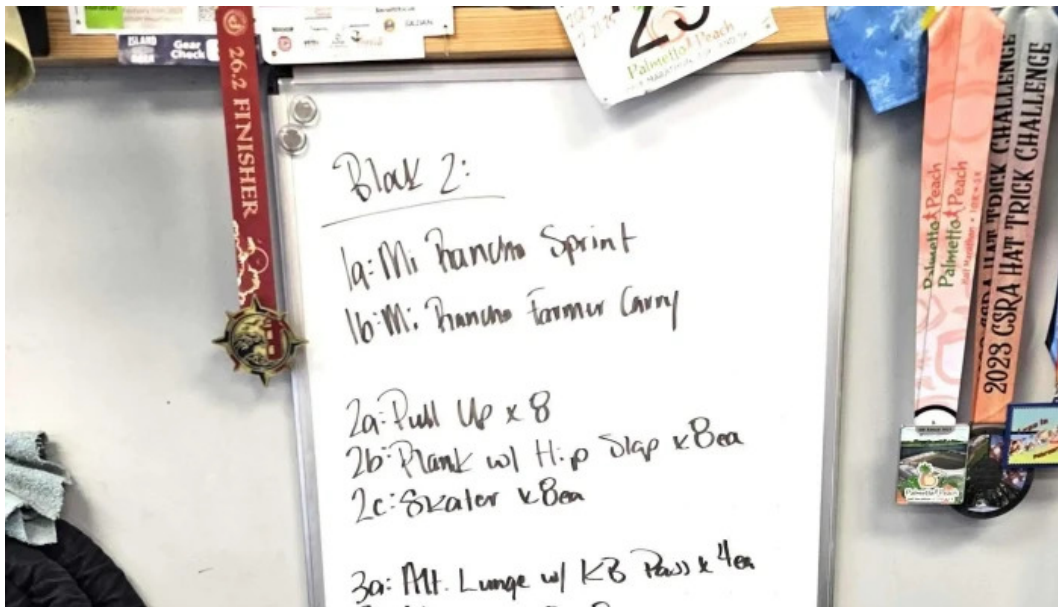 ISLAND
Gear
Check
GILDAN
26.2 FINISHER
Palmetto Peach
Block 2:
1a: Mi Rancho Sprint
1b: Mi Rancho Farmer Carry
2a: Pull Up x 8
2b: Plank w/ Hip Slap x 8ea
2c: Skater x 8ea
3a: Alt. Lunge w/ KB Pass x 4ea
Palmetto Peach
Palmetto Peach
CSRA HAT TRICK CHALLENGE
2023 CSRA HAT TRICK CHALLENGE
Palmetto Peach